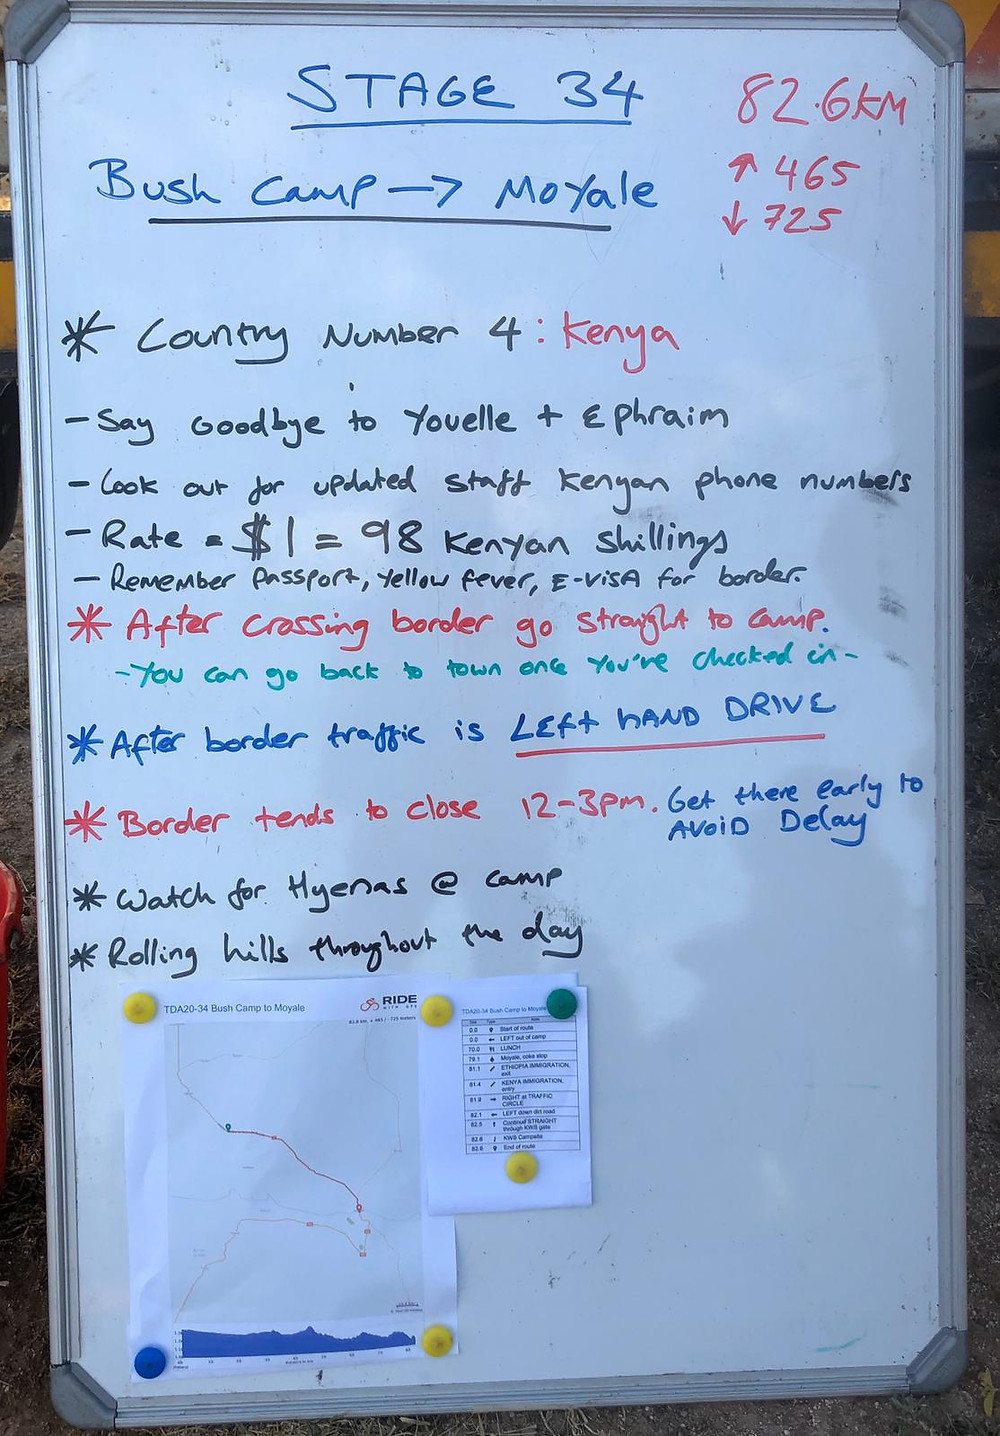 STAGE 34
82.6KM
↑ 465
↓ 725
Bush Camp → Moyale
* Country Number 4 : Kenya
- Say Goodbye to Youelle + Ephraim
- Look out for updated staff Kenyan phone numbers
- Rate = $1 = 98 Kenyan Shillings
- Remember Passport, Yellow fever, E-VISA for border.
* After crossing border go straight to camp.
- You can go back to town once you've checked in -
* After border traffic is LEFT HAND DRIVE
* Border tends to close 12-3pm. Get there early to
AVOID Delay
* Watch for Hyenas @ camp
* Rolling hills throughout the day
TDA20-34 Bush Camp to Moyale
RIDE
WITH GPS
TDA20-34 Bush Camp to Moyale
0.0 Start of route
0.0 LEFT out of camp
70.0 LUNCH
79.1 Moyale, coke stop
81.1 ETHIOPIA IMMIGRATION,
exit
81.4 KENYA IMMIGRATION,
entry
81.9 RIGHT at TRAFFIC
CIRCLE
82.1 LEFT down dirt road
82.5 Continue STRAIGHT
through KWS gate
82.6 KWS Campsite
82.6 End of route